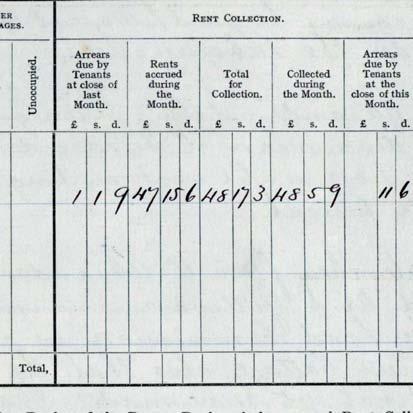 ER
AGES.
RENT COLLECTION.
Unoccupied.
Arrears
due by
Tenants
at close of
last
Month.
Rents
accrued
during
the
Month.
Total
for
Collection.
Collected
during
the Month.
Arrears
due by
Tenants
at the
close of this
Month.
£ s. d. £ s. d. £ s. d. £ s. d. £ s. d.
1 1 9 47 15 6 48 17 3 48 5 9 11 6
Total,